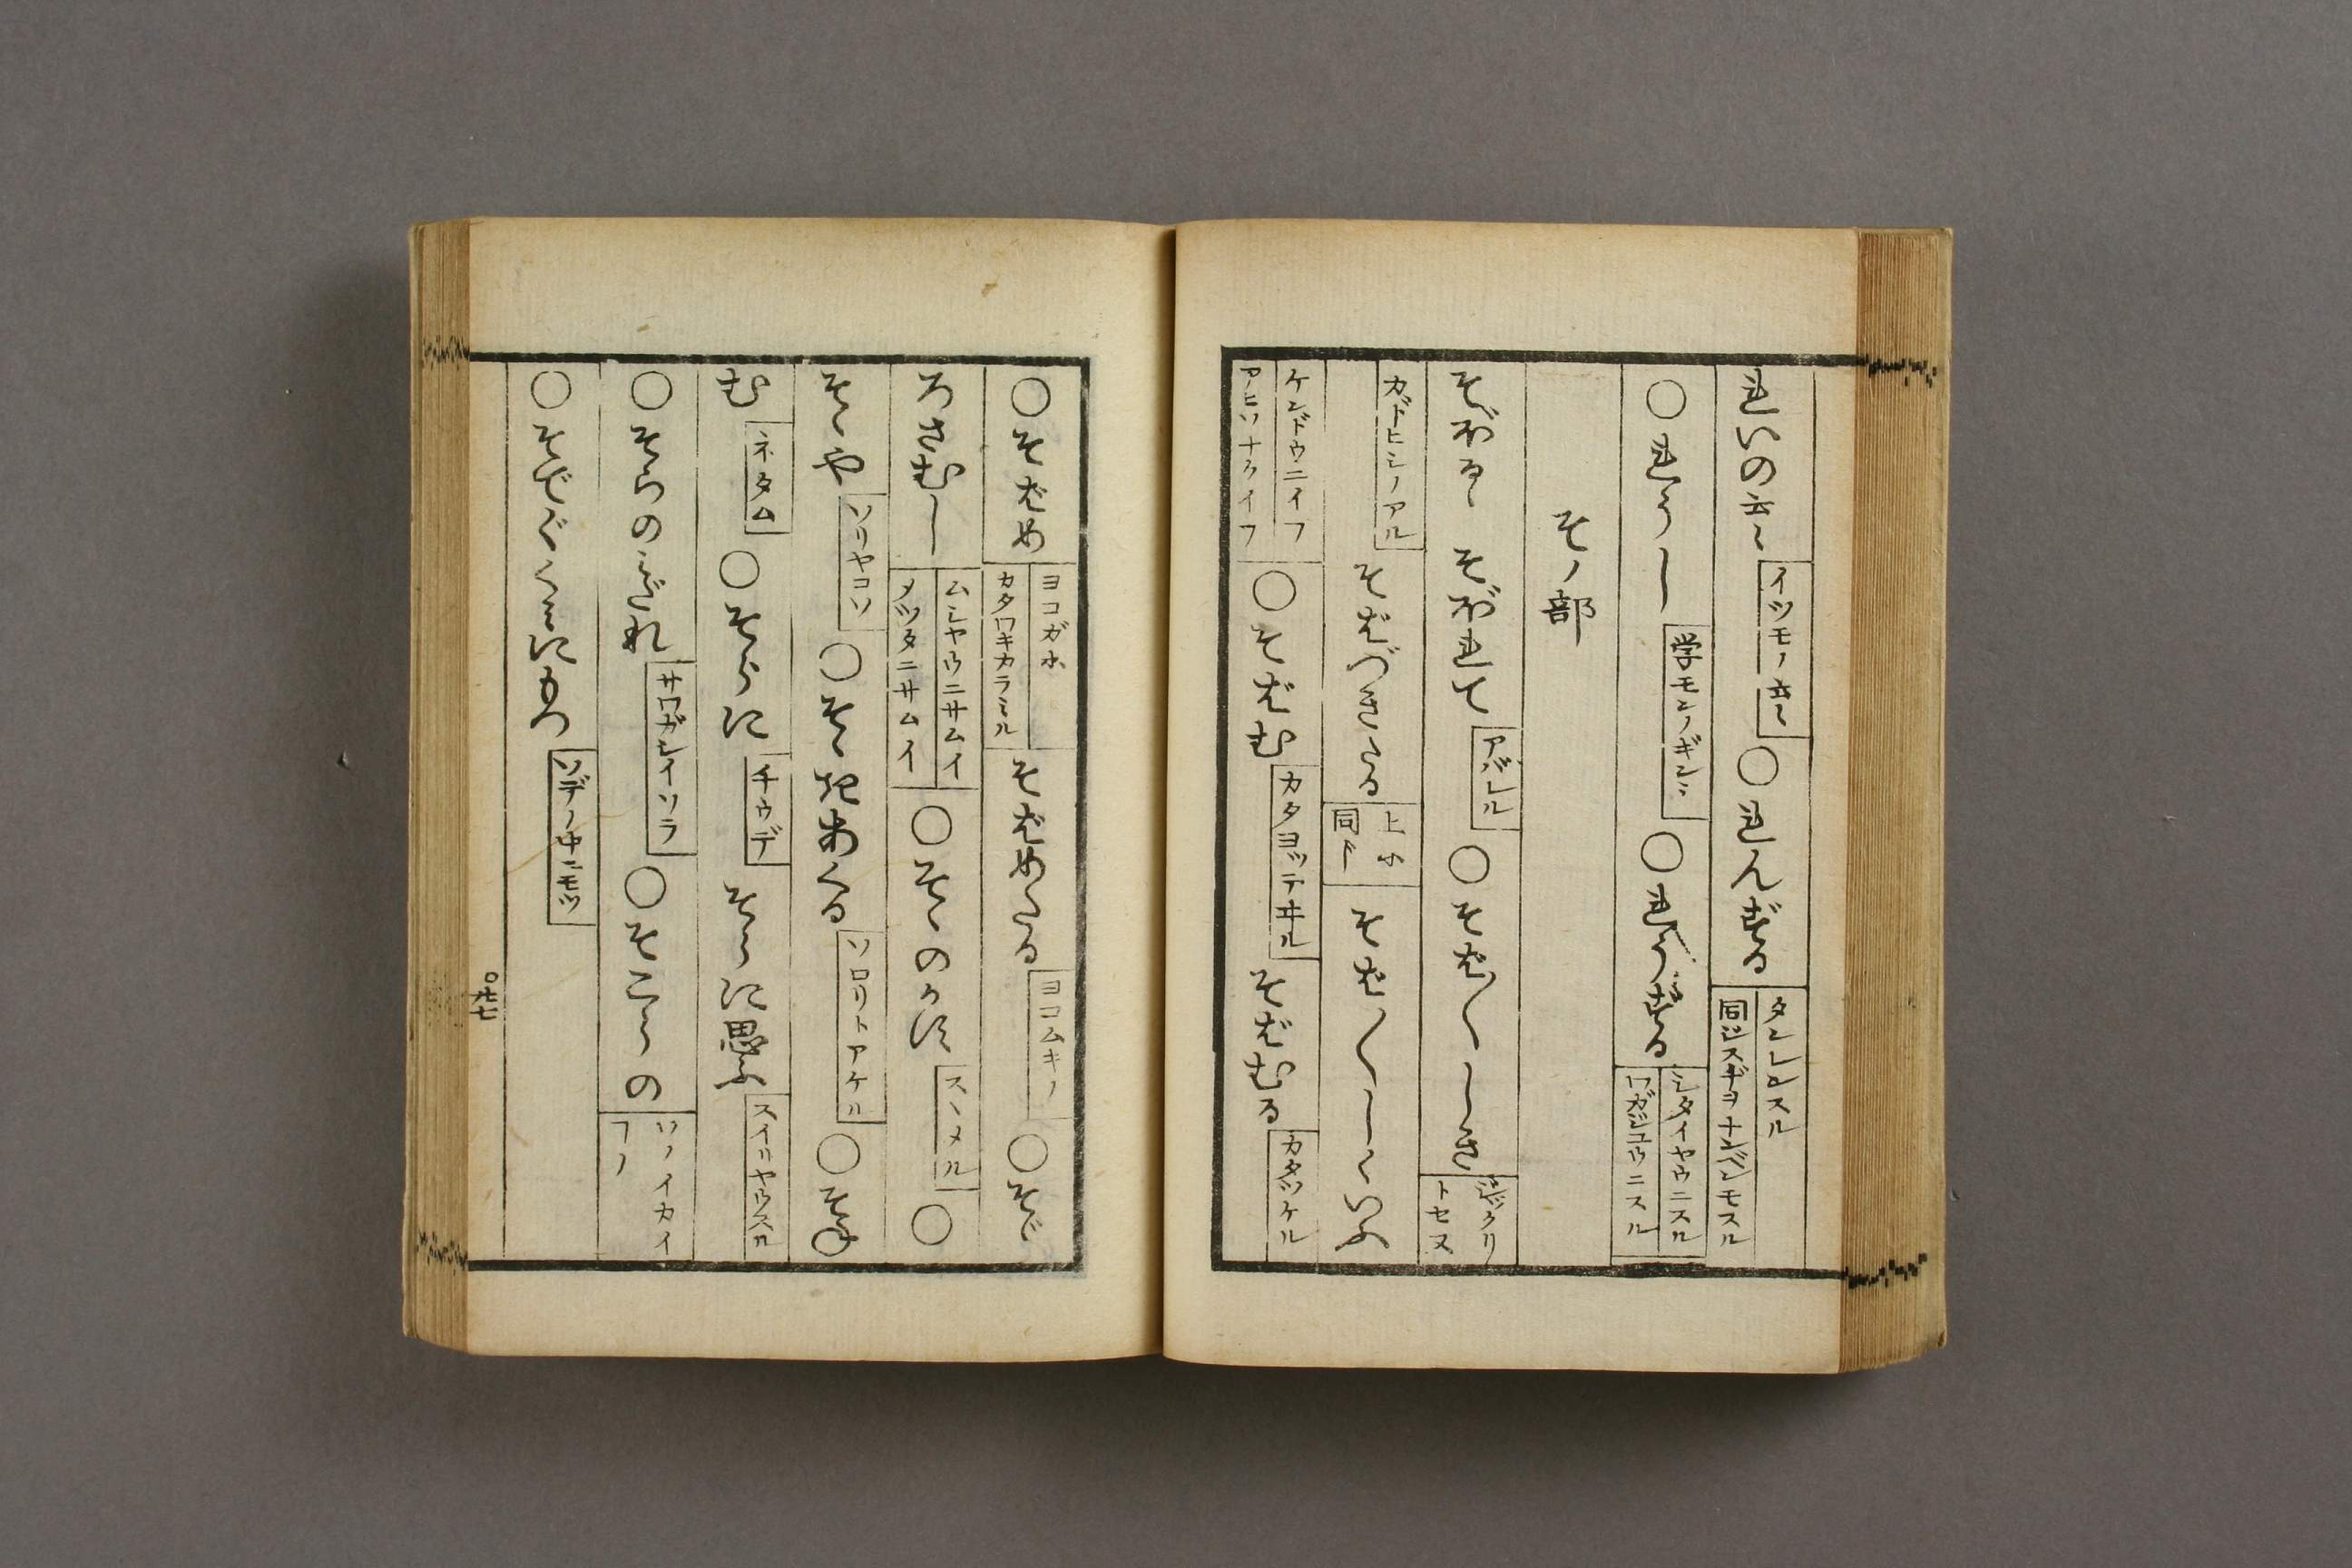 れいのこと イツモノこと ○れんずる タンレンスル 同ジスヂヨナンベンモスル
○れうし 学モンノギンミ ○れうずる シタイヤウニスル ワガジユウニスル
そノ部
そぼるゝ そぼれて アバレル ○そば〱しき シツクリトセヌ
カドヒシノアル そばづきたる 上ニ同ド そば〱しくいふ
ケンドウニイフ アヒソナクイフ ○そばむ カタヨツテ井ル そばむる カタツケル
○そばめ ヨコガホ カタワキカラミル そばめたる ヨコムキノ ○そゞ
ろさむし ムシヤウニサムイ メツタニサムイ ○そゝのかす スヽメル ○
そゝや ソリヤコソ ○そゝきあくる ソロリトアケル ○そね
む ネタム ○そらに チウデ そらに思ふ スイリヤウスル
○そらのみだれ サワガシイソラ ○そこらの ソノイカイフノ
○そでぐくみにもつ ソデノ中ニモツ